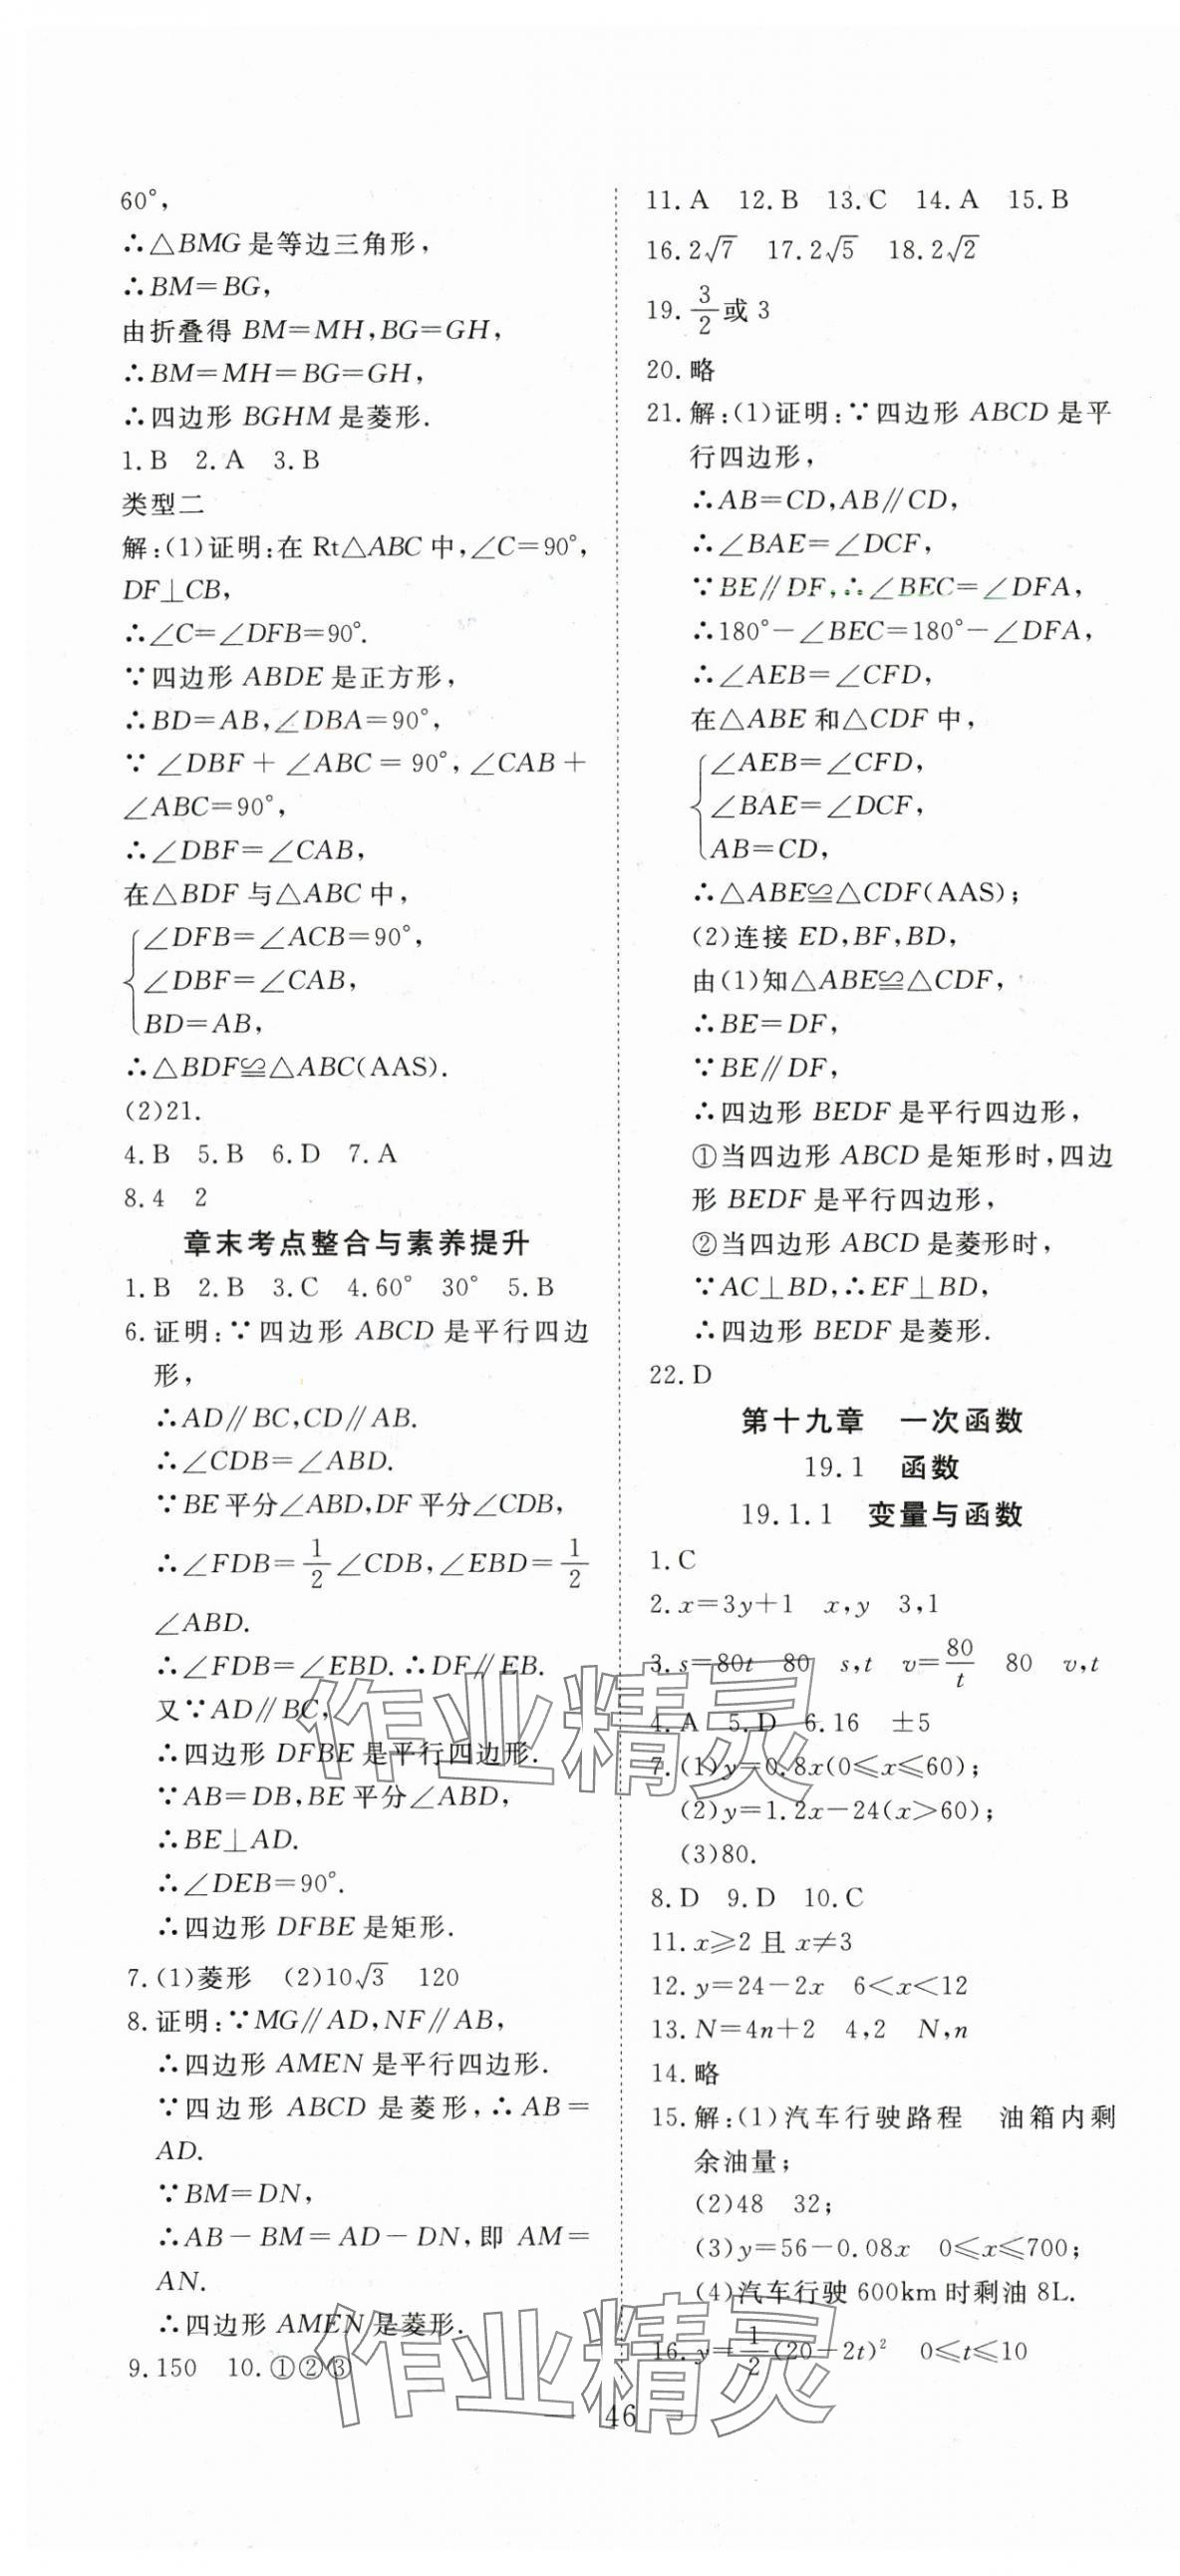 60°,
∴△BMG是等边三角形,
∴BM=BG,
由折叠得 BM=MH,BG=GH,
∴BM=MH=BG=GH,
∴四边形 BGHM 是菱形.
1.B 2.A 3.B
类型二
解:(1)证明:在 Rt△ABC 中,∠C=90°,
DF⊥CB,
∴∠C=∠DFB=90°.
∵四边形 ABDE 是正方形,
∴BD=AB,∠DBA=90°,
∵∠DBF+∠ABC=90°,∠CAB+
∠ABC=90°,
∴∠DBF=∠CAB,
在△BDF 与△ABC 中,
∠DFB=∠ACB=90°,
∠DBF=∠CAB,
BD=AB,
∴△BDF≌△ABC(AAS).
(2)21.
4.B 5.B 6.D 7.A
8.4 2
章末考点整合与素养提升
1.B 2.B 3.C 4.60° 30° 5.B
6.证明:∵四边形 ABCD 是平行四边
形,
∴AD∥BC,CD∥AB.
∴∠CDB=∠ABD.
∵BE平分∠ABD,DF平分∠CDB,
∴∠FDB=1/2∠CDB,∠EBD=1/2
∠ABD.
∴∠FDB=∠EBD.∴DF∥EB.
又∵AD∥BC,
∴四边形 DFBE 是平行四边形.
∵AB=DB,BE平分∠ABD,
∴BE⊥AD.
∴∠DEB=90°.
∴四边形 DFBE 是矩形.
7.(1)菱形 (2)10√3 120
8.证明:∵MG∥AD,NF∥AB,
∴四边形 AMEN 是平行四边形.
∵四边形 ABCD 是菱形,∴AB=
AD.
∵BM=DN,
∴AB-BM=AD-DN,即 AM=
AN.
∴四边形 AMEN 是菱形.
9.150 10.①②③
11.A 12.B 13.C 14.A 15.B
16.2√7 17.2√5 18.2√2
19.3/2或3
20.略
21.解:(1)证明:∵四边形 ABCD 是平
行四边形,
∴AB=CD,AB∥CD,
∴∠BAE=∠DCF,
∵BE∥DF,∴∠BEC=∠DFA,
∴180°-∠BEC=180°-∠DFA,
∴∠AEB=∠CFD,
在△ABE 和△CDF 中,
∠AEB=∠CFD,
∠BAE=∠DCF,
AB=CD,
∴△ABE≌△CDF(AAS);
(2)连接 ED,BF,BD,
由(1)知△ABE≌△CDF,
∴BE=DF,
∵BE∥DF,
∴四边形 BEDF 是平行四边形,
①当四边形 ABCD 是矩形时,四边
形 BEDF 是平行四边形,
②当四边形 ABCD 是菱形时,
∵AC⊥BD,∴EF⊥BD,
∴四边形 BEDF 是菱形.
22.D
第十九章 一次函数
19.1 函数
19.1.1 变量与函数
1.C
2.x=3y+1 x,y 3,1
3.s=80t 80 s,t v=80/t 80 v,t
4.A 5.D 6.16 ±5
7.(1)y=0.8x(0≤x≤60);
(2)y=1.2x-24(x>60);
(3)80.
8.D 9.D 10.C
11.x≥2且x≠3
12.y=24-2x 6<x<12
13.N=4n+2 4,2 N,n
14.略
15.解:(1)汽车行驶路程 油箱内剩
余油量;
(2)48 32;
(3)y=56-0.08x 0≤x≤700;
(4)汽车行驶600km时剩油8L.
16.y=1/2(20-2t)² 0≤t≤10
46
作业精灵
作业精灵